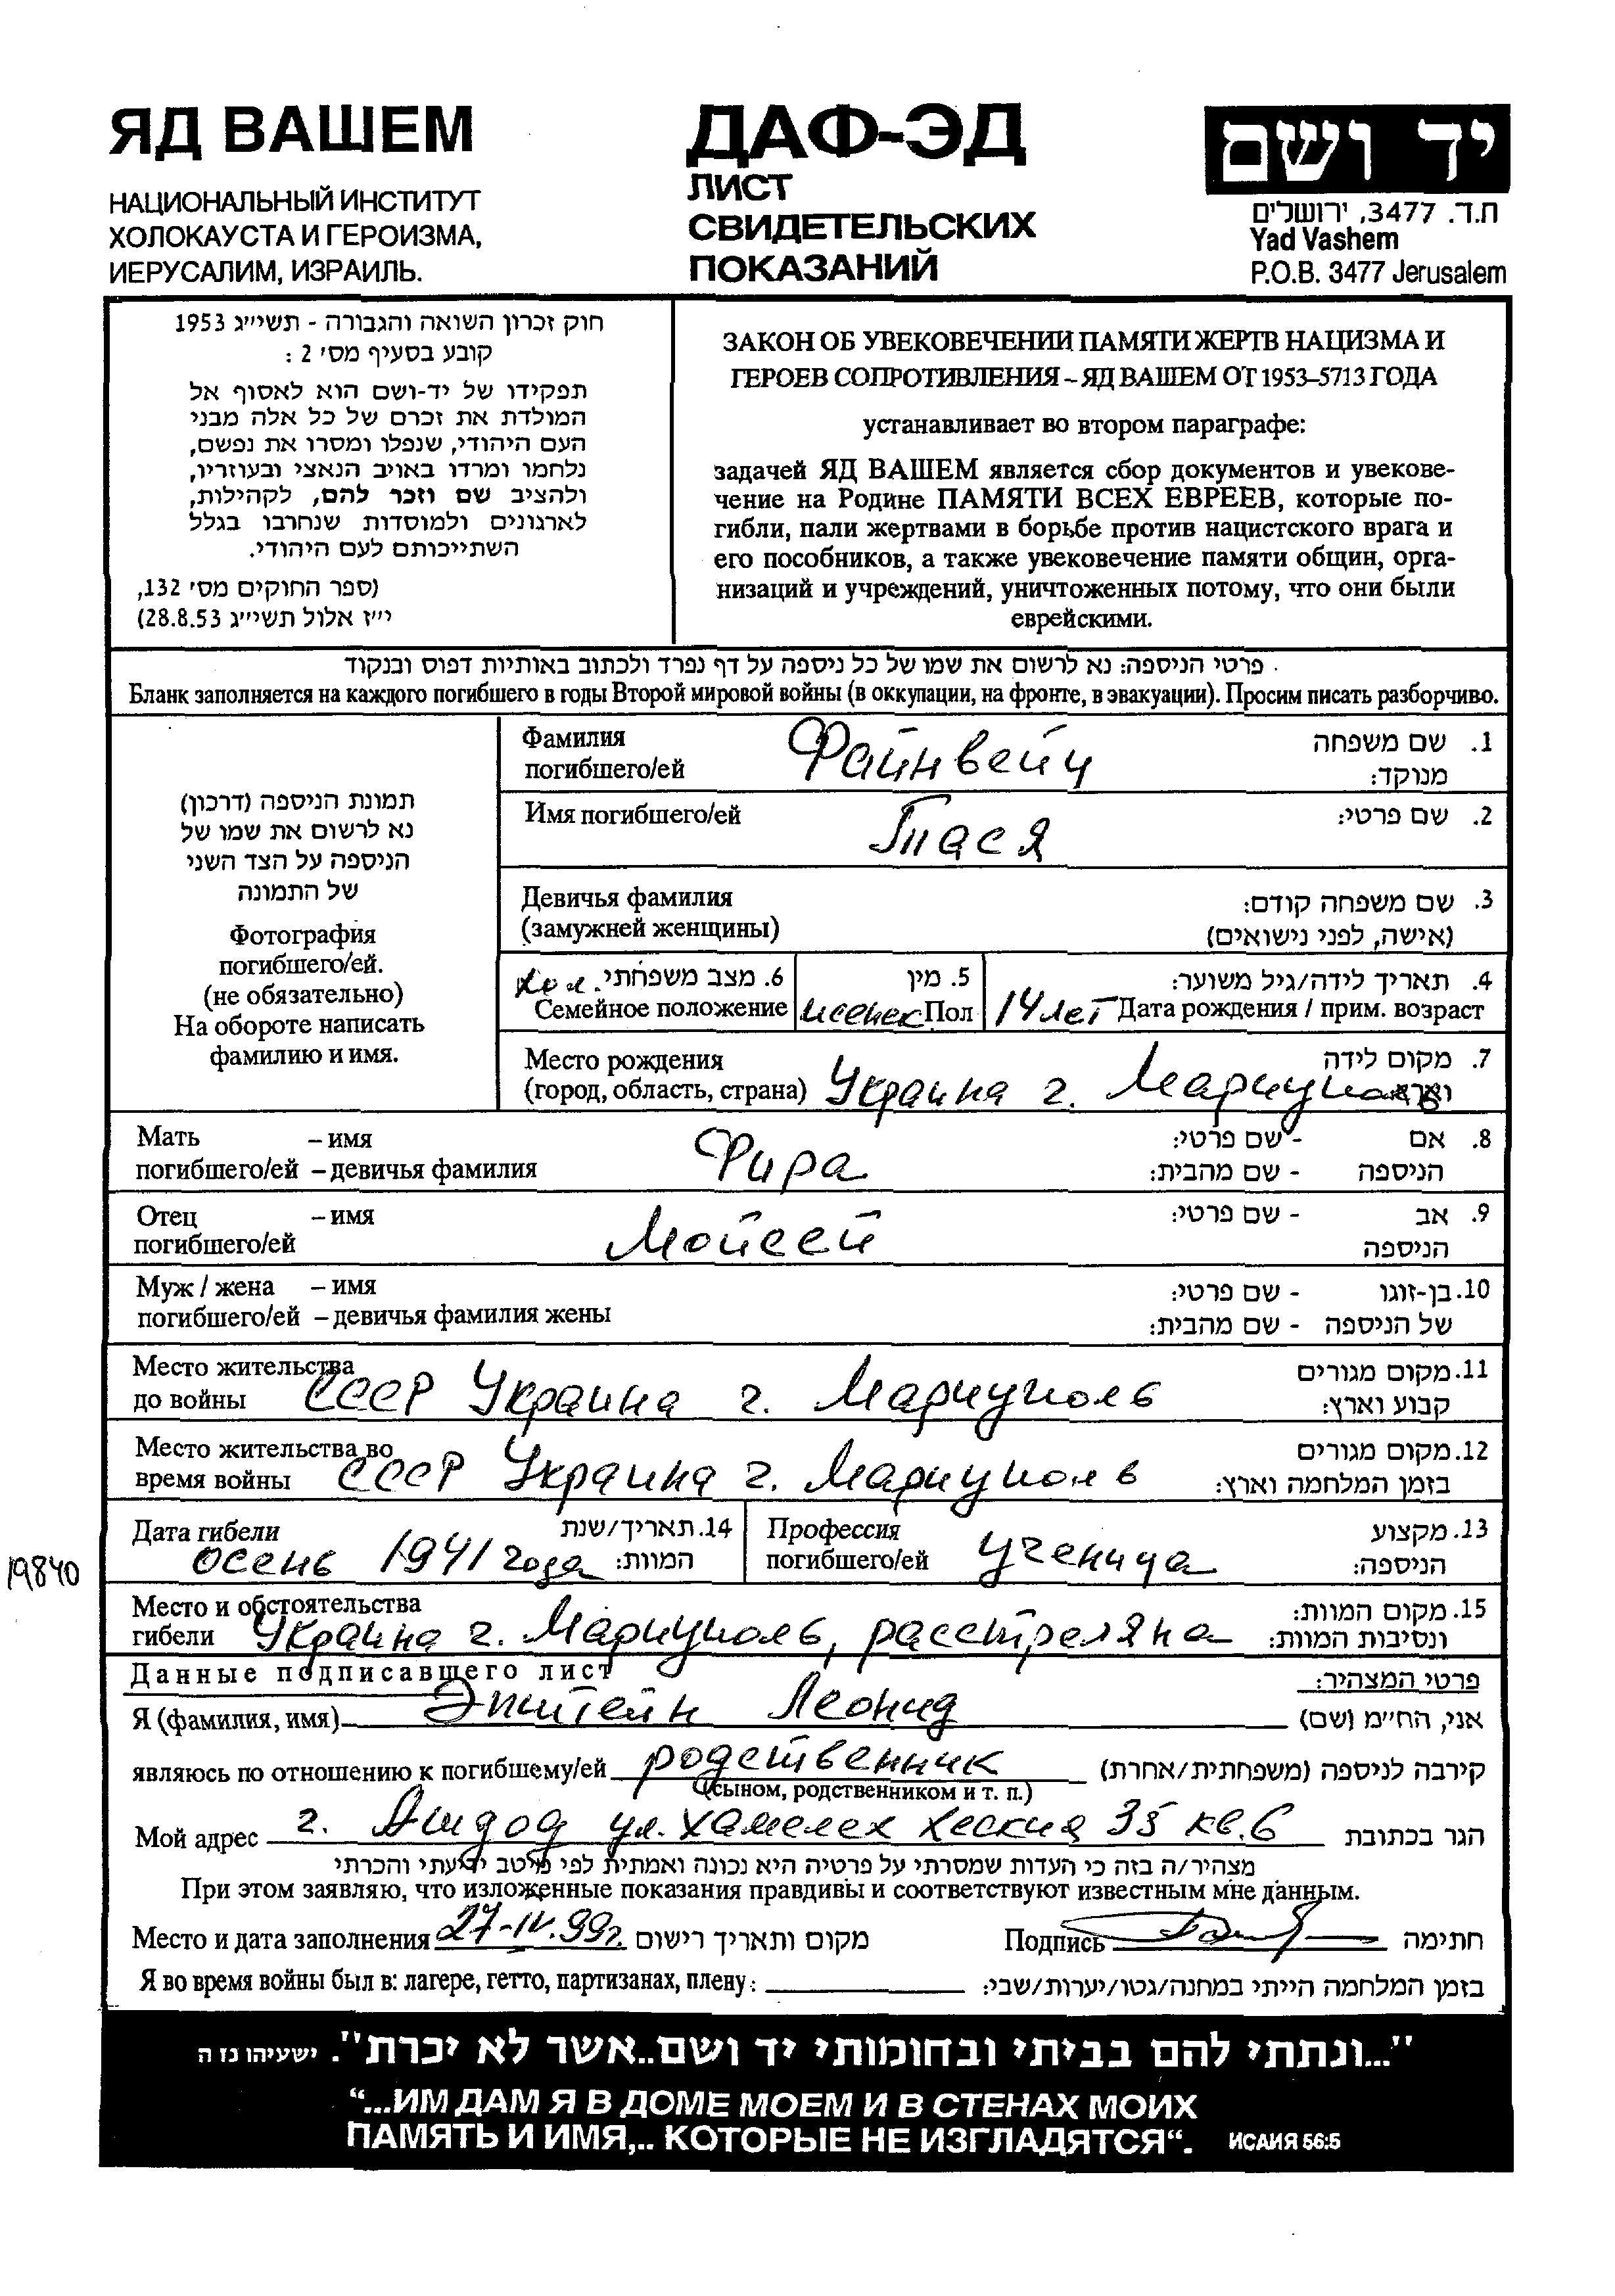 ЯД ВАШЕМ
НАЦИОНАЛЬНЫЙ ИНСТИТУТ
ХОЛОКАУСТА И ГЕРОИЗМА,
ИЕРУСАЛИМ, ИЗРАИЛЬ.
ДАФ-ЭД
ЛИСТ
СВИДЕТЕЛЬСКИХ
ПОКАЗАНИЙ
יד ושם
ת.ד. 3477, ירושלים
Yad Vashem
P.O.B. 3477 Jerusalem
חוק זכרון השואה והגבורה - תשי״ג 1953
קובע בסעיף מס׳ 2 :
תפקידו של יד-ושם הוא לאסוף אל
המולדת את זכרם של כל אלה מבני
העם היהודי, שנפלו ומסרו את נפשם,
נלחמו ומרדו באויב הנאצי ובעוזריו,
ולהציב שם וזכר להם, לקהילות,
לארגונים ולמוסדות שנחרבו בגלל
השתייכותם לעם היהודי.
(ספר החוקים מס׳ 132,
י״ז אלול תשי״ג 28.8.53)
ЗАКОН ОБ УВЕКОВЕЧЕНИИ ПАМЯТИ ЖЕРТВ НАЦИЗМА И
ГЕРОЕВ СОПРОТИВЛЕНИЯ – ЯД ВАШЕМ ОТ 1953–5713 ГОДА
устанавливает во втором параграфе:
задачей ЯД ВАШЕМ является сбор документов и увекове-
чение на Родине ПАМЯТИ ВСЕХ ЕВРЕЕВ, которые по-
гибли, пали жертвами в борьбе против нацистского врага и
его пособников, а также увековечение памяти общин, орга-
низаций и учреждений, уничтоженных потому, что они были
еврейскими.
פרטי הניספה: נא לרשום את שמו של כל ניספה על דף נפרד ולכתוב באותיות דפוס ובנקוד
Бланк заполняется на каждого погибшего в годы Второй мировой войны (в оккупации, на фронте, в эвакуации). Просим писать разборчиво.
תמונת הניספה (דרכון)
נא לרשום את שמו של
הניספה על הצד השני
של התמונה
Фотография
погибшего/ей.
(не обязательно)
На обороте написать
фамилию и имя.
Фамилия Файнвейц 1. שם משפחה
погибшего/ей מנוקד:
Имя погибшего/ей Тася 2. שם פרטי:
Девичья фамилия 3. שם משפחה קודם:
(замужней женщины) (אישה, לפני נישואים)
хол. 6. מצב משפחתי 5. מין 4. תאריך לידה/גיל משוער:
Семейное положение женск Пол 14 лет Дата рождения / прим. возраст
Место рождения 7. מקום לידה
(город, область, страна) Украина г. Мариуполь וארץ
Мать – имя Фира 8. אם - שם פרטי:
погибшего/ей – девичья фамилия הניספה - שם מהבית:
Отец – имя Мойсей 9. אב - שם פרטי:
погибшего/ей הניספה
Муж / жена – имя 10. בן-זוגו - שם פרטי:
погибшего/ей – девичья фамилия жены של הניספה - שם מהבית:
Место жительства 11. מקום מגורים
до войны СССР Украина г. Мариуполь קבוע וארץ:
Место жительства во 12. מקום מגורים
время войны СССР Украина г. Мариуполь בזמן המלחמה וארץ:
Дата гибели 14. תאריך/שנת Профессия 13. מקצוע
осень 1941 года המוות: погибшего/ей ученица הניספה:
19840
Место и обстоятельства 15. מקום המוות:
гибели Украина г. Мариуполь, расстреляна ונסיבות המוות:
Данные подписавшего лист פרטי המצהיר:
Я (фамилия, имя) Эпштейн Леонид אני, הח״מ (שם)
являюсь по отношению к погибшему/ей родственник קירבה לניספה (משפחתית/אחרת)
(сыном, родственником и т. п.)
Мой адрес г. Ашдод ул. Хамелех Хеския 35 кв. 6 הגר בכתובת
מצהיר/ה בזה כי העדות שמסרתי על פרטיה היא נכונה ואמתית לפי מיטב ידיעתי והכרתי
При этом заявляю, что изложенные показания правдивы и соответствуют известным мне данным.
Место и дата заполнения 27-IV.99г. מקום ותאריך רישום Подпись חתימה
Я во время войны был в: лагере, гетто, партизанах, плену: בזמן המלחמה הייתי במחנה/גטו/יערות/שבי:
"...ונתתי להם בביתי ובחומותי יד ושם..אשר לא יכרת". ישעיהו נז ה
“...ИМ ДАМ Я В ДОМЕ МОЕМ И В СТЕНАХ МОИХ
ПАМЯТЬ И ИМЯ,.. КОТОРЫЕ НЕ ИЗГЛАДЯТСЯ“. ИСАИЯ 56:5